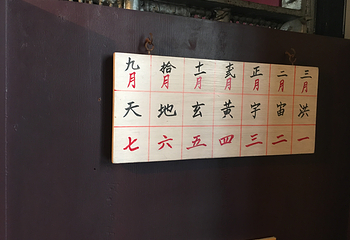 九月 拾月 十一月 弍月 正月 二月 三月
天 地 玄 黃 宇 宙 洪
七 六 五 四 三 二 一